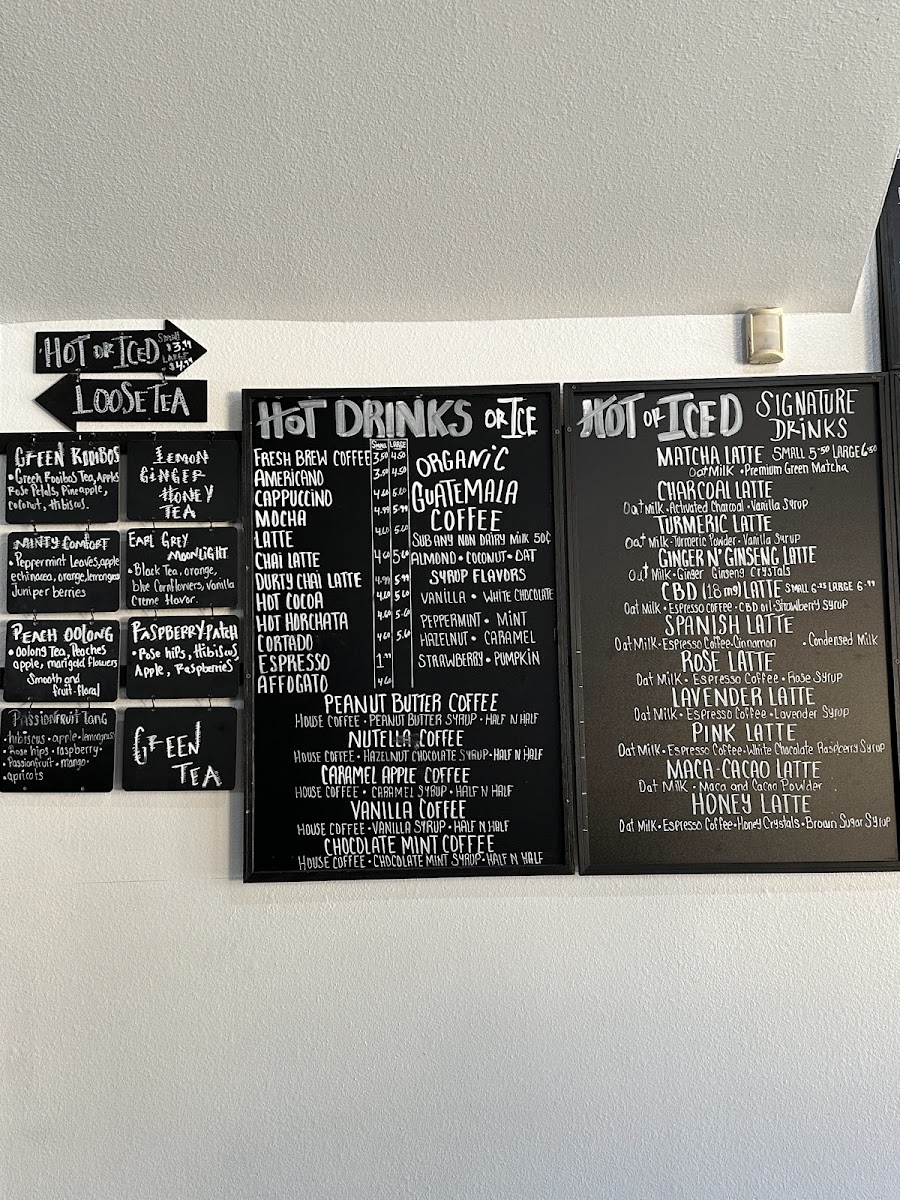 HOT OR ICED SMALL $3.99 LARGE $4.99
LOOSE TEA
GREEN ROOIBOS
• Green Rooibos Tea, Apples
Rose Petals, Pineapple,
coconut, Hibiscus.
LEMON
GINGER
HONEY
TEA
MINTY COMFORT
• Peppermint Leaves, apple
echinacea, orange, lemongrass
Juniper berries
EARL GREY
MOONLIGHT
• Black Tea, orange,
blue Cornflowers, vanilla
Creme flavor.
PEACH OOLONG
• Oolong Tea, Peaches
apple, marigold flowers
Smooth and
fruit-floral
RASPBERRY-PATCH
• Rose hips, Hibiscus,
Apple, Raspberries
PASSIONFRUIT TANG
• hibiscus • apple • lemongrass
• Rose hips • raspberry •
Passionfruit • mango •
• apricots
GREEN
TEA
HOT DRINKS OR ICE
SMALL LARGE
FRESH BREW COFFEE 3.50 4.50
AMERICANO 3.50 4.50
CAPPUCCINO 4.60 5.60
MOCHA 4.99 5.99
LATTE 4.60 5.60
CHAI LATTE 4.60 5.60
DURTY CHAI LATTE 4.99 5.99
HOT COCOA 4.60 5.60
HOT HORCHATA 4.60 5.60
CORTADO 4.60 5.60
ESPRESSO 1.99
AFFOGATO 4.60
ORGANIC
GUATEMALA
COFFEE
SUB ANY NON DAIRY MILK 50¢
ALMOND • COCONUT • OAT
SYRUP FLAVORS
VANILLA • WHITE CHOCOLATE
PEPPERMINT • MINT
HAZELNUT • CARAMEL
STRAWBERRY • PUMPKIN
PEANUT BUTTER COFFEE
HOUSE COFFEE • PEANUT BUTTER SYRUP • HALF N HALF
NUTELLA COFFEE
HOUSE COFFEE • HAZELNUT CHOCOLATE SYRUP • HALF N HALF
CARAMEL APPLE COFFEE
HOUSE COFFEE • CARAMEL SYRUP • HALF N HALF
VANILLA COFFEE
HOUSE COFFEE • VANILLA SYRUP • HALF N HALF
CHOCOLATE MINT COFFEE
HOUSE COFFEE • CHOCOLATE MINT SYRUP • HALF N HALF
HOT OR ICED SIGNATURE
DRINKS
MATCHA LATTE SMALL 5.50 LARGE 6.50
Oat Milk • Premium Green Matcha
CHARCOAL LATTE
Oat Milk • Activated Charcoal • Vanilla Syrup
TURMERIC LATTE
Oat Milk • Turmeric Powder • Vanilla Syrup
GINGER N' GINSENG LATTE
Oat Milk • Ginger Ginseng Crystals
CBD (18 mg) LATTE SMALL 6.25 LARGE 6.99
Oat Milk • Espresso coffee • CBD oil • Strawberry Syrup
SPANISH LATTE
Oat Milk • Espresso Coffee • Cinnamon • Condensed Milk
ROSE LATTE
Oat Milk • Espresso Coffee • Rose Syrup
LAVENDER LATTE
Oat Milk • Espresso Coffee • Lavender Syrup
PINK LATTE
Oat Milk • Espresso Coffee • White Chocolate Raspberry Syrup
MACA-CACAO LATTE
Oat Milk • Maca and Cacao Powder
HONEY LATTE
Oat Milk • Espresso Coffee • Honey Crystals • Brown Sugar Syrup